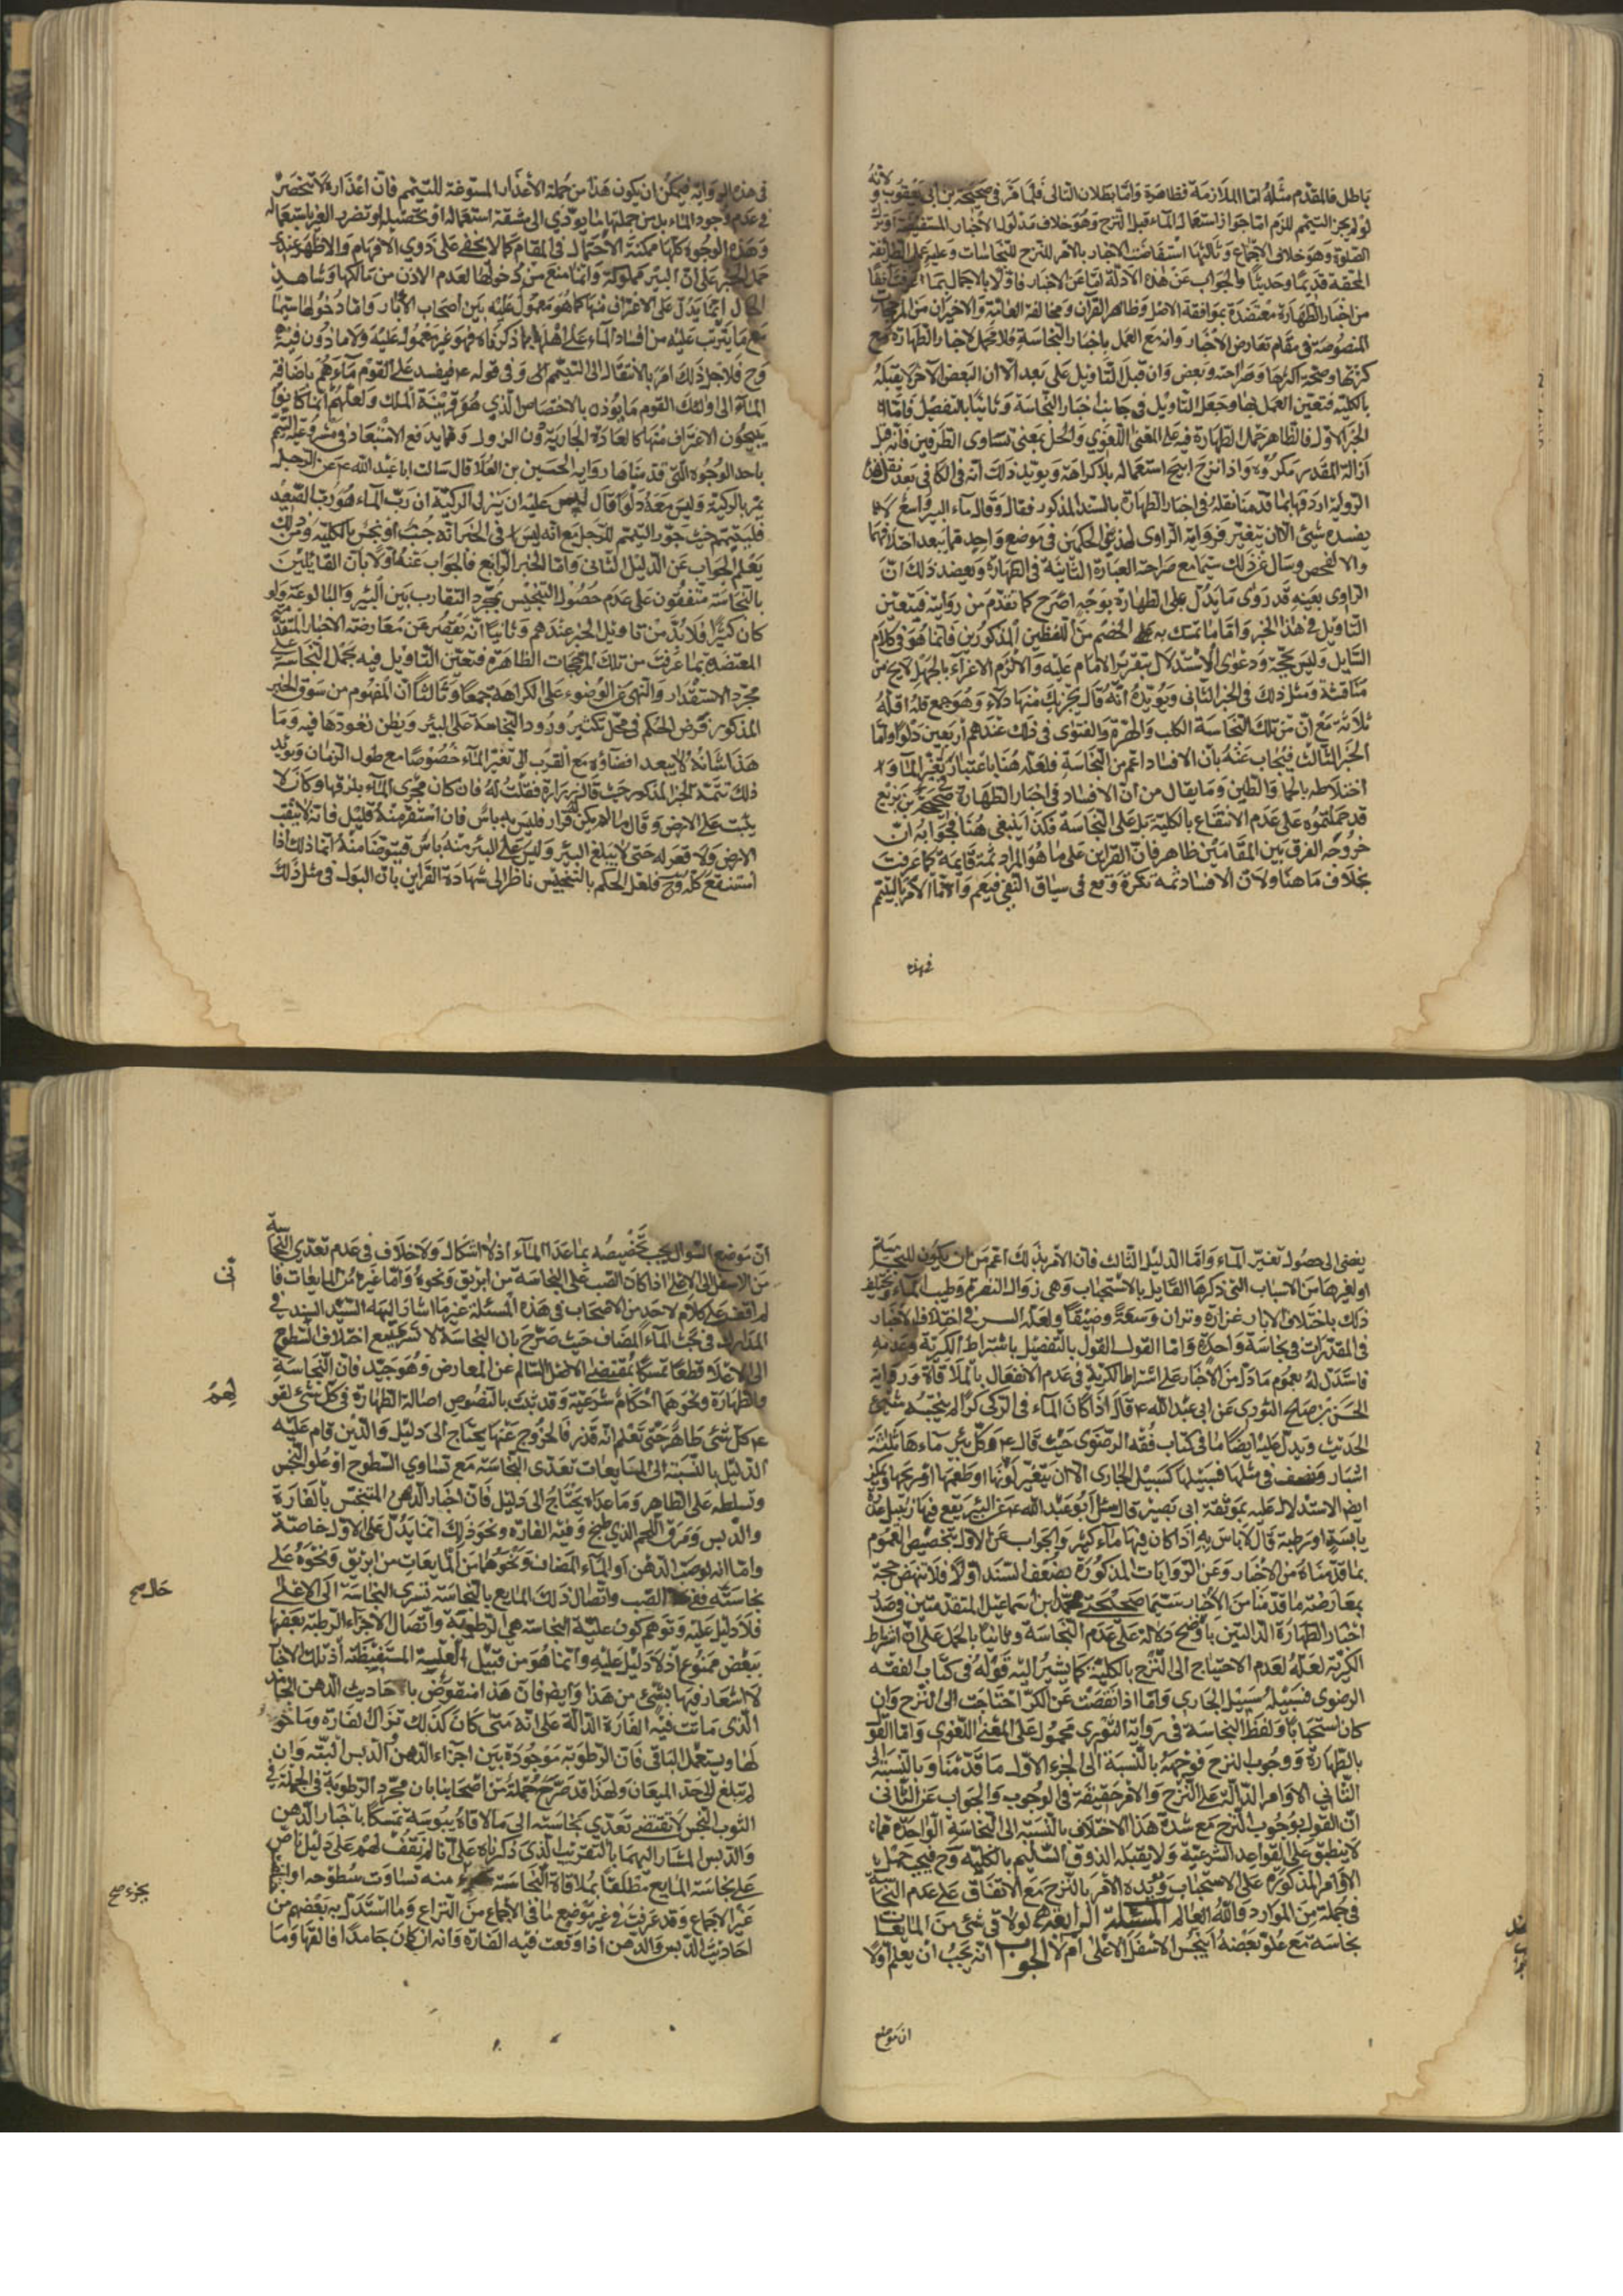 لانه
باطل فالمقدم مثله اما الملازمة فظاهرة واما بطلان التالى فلما مر فى صحيحة بن ابى يعقوب و
لو لم يجز التيمم للزم اما جواز استعمال الماء قبل النزح وهو خلاف مدلول الاخبار المستفيضة او ترك
الصلوة وهو خلاف الاجماع وثالثها استفاضت الاخبار بالامر للنزح للنجاسات وعليه عمل الطائفة
المحقة قديما وحديثا والجواب عن هذه الادلة اما عن الاخبار فاولا بالاجمال بما عرفت انفا
من اخبار الطهارة معتضدة بموافقة الاصل وظاهر القران ومخالفة العامة والاخيران من المرجحات
المنصوصة فى مقام تعارض الاخبار وانه مع العمل باخبار النجاسة فلا محمل لاخبار الطهارة مع
كثرتها وصحة اكثرها وصراحته وبعض وان قبل التاويل على بعد الا ان البعض الاخر لا يقبله
بالكلية فتعين العمل بها وجعل التاويل فى جانب اخبار النجاسة وثانيا بالتفصيل فاما
الخبر الاول فالظاهر حمل الطهارة فيه على المعنى اللغوي والحل بمعنى تساوى الطرفين فانه قبل
ازالة المقدر مكروه واذا نزح ابيح استعماله بلا كراهة ويؤيد ذلك انه فى الكافى بعد نقل هذه
الرواية اردفها بما قدمنا نقله فى اخبار الطهارة بالسند المذكور فقال وقال ماء البير واسع لا
يفسده شيئ الا ان يتغير فرواية الراوى لهذين الحكمين فى موضع واحد مما يبعد اختلافهما
والا لفحص وسال عن ذلك سيما مع صراحة العبارة الثانية فى الطهارة ويعضد ذلك ان
الراوى بعينه قد روى ما يدل على الطهارة بوجه اصرح كما تقدم من روايته فتعين
التاويل فى هذا الخبر واما ما تمسك به الخصم من اللفظين المذكورين فانما هو فى كلام
السايل وليس بحجة ودعوى الاستدلال بتقرير الامام عليه والا لزم الاغراء بالجهل لا يخ من
مناقشة ومثل ذلك فى الخبر الثانى ويؤيده انه قال يجزيك منها دلاء وهو جمع قلة اقله
ثلاثة مع ان من تلك النجاسة الكلب والهرة والفتوى فى ذلك عندهم اربعين دلوا واما
الخبر الثالث فيجاب عنه بان الافساد اعم من النجاسة فلعله هنا باعتبار تغير الماء و
اختلاطه بالحماء والطين وما يقال من ان الافساد فى اخبار الطهارة صحيحة بن بزيع
قد حملتموه على عدم الانتفاع بالكلية بل على النجاسة فكذا ينبغى هنا فجوابه ان
خروجه الفرق بين المقامين ظاهر فان القراين على ما هو المراد ثمة قايمة كما عرفت
بخلاف ما هنا ولان الافساد ثمه نكرة وقع فى سياق النفى فيعم واما الامر بالتيمم
فى هذه
فى هذه الرواية فيمكن ان يكون هذا من جملة الاعذار المسوغة للتيمم فان اعذاره لا تنحصر
فى عدم وجود الماء بل من جملتها ما يؤدي الى مشقة استعماله او تحصيله او تضرر الغير باستعماله
وهذه الوجوه كلها ممكنة الاحتمال فى المقام كما لا يخفى على ذوي الافهام والاظهر عندي
حمل الخبر على ان البير مملوكة وانما منع من دخولها لعدم الاذن من مالكها وشاهد
الحال انما يدل على الاغتراف منها كما هو معمول عليه بين اصحاب الابار واما دخولها سيما
مع ما يترتب عليه من افساد الماء على اهلها بما ذكرناه فهو غير معمول عليه ولا ماذون فيه
وح فلاجل ذلك امر بالانتقال الى التيمم وفى قوله ع فيفسد على القوم ماءهم باضافة
الماء الى اولئك القوم ما يؤذن بالاختصاص الذي هو قرينة الملك ولعلهم انما كانوا
يبيحون الاغتراف منها كالعادة الجارية دون النزول ومما يدفع الاستبعاد فى مشروعية التيمم
باحد الوجوه التى قدمناها رواية الحسين بن العلا قال سالت ابا عبد الله ع عن الرجل
يمر بالركية وليس معه دلو قال ليس عليه ان ينزل الركية ان رب الماء هو رب الصعيد
فليتيمم حيث جوز التيمم للرجل مع انه ليس فى الخبر انه جنب او نجس بالكلية ومن ذلك
يعلم الجواب عن الدليل الثانى واما الخبر الرابع فالجواب عنه اولا بان القايلين
بالنجاسة متفقون على عدم حصول التنجيس بمجرد التقارب بين البير والبالوعة ولو
كان كثيرا فلا بد من تاويل الخبر عندهم وثانيا انه يقصر عن معارضة الاخبار المتقدمة
المعتضدة بما عرفت من تلك المرجحات الظاهرة فتعين التاويل فيه بحمل النجاسة على
مجرد الاستقذار والنهى عن الوضوء على الكراهة جمعا وثالثا ان المفهوم من سوق الخبر
المذكور فرض الحكم فى محل تكثير ورود النجاسة على البير ويظن نفوذها فيه وما
هذا شانه لا يبعد افضاؤه مع القرب الى تغير الماء خصوصا مع طول الزمان ويؤيد
ذلك تتمة الخبر المذكور حيث قال زرارة فقلت له فان كان مجرى الماء بلزقها وكان لا
يثبت على الارض وقال ما لم يكن له قرار فليس به باس فان استقر منه قليل فانه لا يثقب
الارض ولا قعر له حتى لا يبلغ البير وليس على البير منه باس فيتوضا منه انما ذلك اذا
استنقع كله وح فلعل الحكم بالتنجيس ناظر الى شهادة القراين بان البول فى مثل ذلك
يفضى الى حصول تغير الماء واما الدليل الثالث فان الامر بذلك اعم من ان يكون للنجاسة
او لغيرها من الاسباب التى ذكرها القايل بالاستحباب وهى زوال النفرة وطيب الماء ويختلف
ذلك باختلاف الابار غزارة ونزرا وسعة وضيقا ولعله السر فى اختلاف الاخبار
فى المقدرات فى نجاسة واحدة واما القول القول بالتفصيل باشتراط الكرية وعدمه
فاستدل له بعموم ما دل من الاخبار على اشتراط الكرية فى عدم الانفعال بالملاقاة ورواية
الحسن بن صالح الثوري عن ابى عبد الله ع قال اذا كان الماء فى الركى كرا لم ينجسه شيئ
الحديث ويدل عليه ايضا ما فى كتاب فقه الرضوى حيث قال ع وكل بير ماءها ثلثة
اشبار ونصف فى مثلها فسبيلها كسبيل الجارى الا ان يتغير لونها او طعمها او ريحها ويمكن
ايضا الاستدلال عليه بموثقة ابى بصير قال سئل ابو عبد الله ع عن البير يقع فيها زبيل عذرة
يابسة او رطبة قال لا باس به اذا كان فيها ماء كثير والجواب عن الاول بتخصيص العموم
بما قدمناه من الاخبار وعن الروايات المذكورة بضعف السند اولا فلا تنهض حجة
بمعارضة ما قدمنا من الاخبار سيما صحيحتى محمد بن اسماعيل المتقدمتين فى صدر
اخبار الطهارة الدالتين باوضح دلالة على عدم النجاسة وثانيا بالحمل على ان اشتراط
الكرية لعله لعدم الاحتياج الى النزح بالكلية كما يشير اليه قوله فى كتاب الفقه
الرضوى فسبيله سبيل الجاري واما اذا نقصت عن الكر احتاجت الى النزح وان
كان استحبابا ولفظ النجاسة فى رواية الثوري محمول على المعنى اللغوي واما القول
بالطهارة ووجوب النزح فوجهه بالنسبة الى الجزء الاول ما قدمنا وبالنسبة الى
الثاني الاوامر الدالة على النزح والامر حقيقة فى الوجوب والجواب عن الثانى
ان القول بوجوب النزح مع شدة هذا الاختلاف بالنسبة الى النجاسة الواحدة مما
لا ينطبق على القواعد الشرعية ولا يقبله الذوق السليم بالكلية وح فيجب حمل
الاوامر المذكورة على الاستحباب ويؤيده الامر بالنزح مع الاتفاق على عدم النجاسة
فى جملة من الموارد والله العالم المسئلة الرابعه لو لاقى شئ من المايعات
نجاسة مع علو بعضه اينجس الاسفل الاعلى ام لا الجواب انه يجب ان يعلم اولا
ان موضع
ان موضع السوال يجب تخصيصه بما عدا الماء اذ لا اشكال ولا خلاف فى عدم تعدي النجاسة
من الاسفل الى الاعلى اذا كان الصب على النجاسة من ابريق ونحوه واما غيره من المايعات فا
نى
لم اقف على كلام لاحد من الاصحاب فى هذه المسئلة غير ما اشار اليه السيد السند فى
المدارك فى بحث الماء المضاف حيث صرح بان النجاسة لا تسرى مع اختلاف السطوح
الى الاعلا قطعا تمسكا بمقتضى الاصل السالم عن المعارض وهو جيد فان النجاسة
والطهارة ونحوهما احكام شرعية وقد ثبت بالنصوص اصالة الطهارة فى كل شيئ لقو
لهم
ع كل شئ طاهر حتى تعلم انه قذر فالخروج عنها يحتاج الى دليل والذين قام عليه
الدليل بالنسبة الى المايعات تعدى النجاسة مع تساوي السطوح او علو النجس
وتسلطه على الطاهر وما عداه يحتاج الى دليل فان اخبار الدهن المتنجس بالفارة
والدبس ومرق اللحم الذي طبخ وفيه الفارة ونحو ذلك انما يدل على الاول خاصة
واما انه لو صب الدهن او الماء المضاف ونحوها من المايعات من ابريق ونحوه على
نجاسته ففى الصب واتصال ذلك المايع بالنجاسة تسرى النجاسة الى الاعلى
حال صح
فلا دليل عليه وتوهم كون علية النجاسة هى الرطوبة واتصال الاجزاء الرطبة بعضها
ببعض ممنوع اذ لا دليل عليه وانما هو من قبيل العلية المستنبطة اذ تلك الاخبا
لا اشعار فيها بشيئ من هذا وايضا فان هذا منقوض باحاديث الدهن الجامد
الذى ماتت فيه الفارة الدالة على انه متى كان كذلك تزال الفارة وما حو
لها ويستعمل الباقى فان الرطوبة موجودة بين اجزاء الدهن والدبس البتة وان
لم تبلغ الى حد الميعان ولهذا قد صرح جملة من اصحابنا بان مجرد الرطوبة فى الجملة فى
الثوب النجس لا تقتضى تعدي نجاسته الى ما لاقاه يبوسة تمسكا باخبار الدهن
والدبس المشار اليهما بالتقريب الذى ذكرناه على انا لم نقف لهم على دليل ناص
على نجاسة المايع مطلقا بملاقاة النجاسة منه تساوت سطوحه او اختلفت
بجزء صح
غير الاجماع وقد عرفت فى غير موضع ما فى الاجماع من النزاع وما استدل به بعضهم من
احاديث الدبس والدهن اذا وقعت فيه الفارة وانه ان كان جامدا فالقها وما